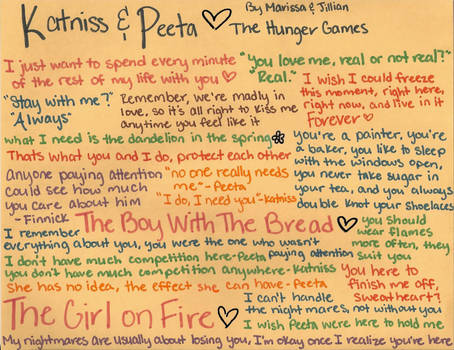 Katniss & Peeta ♡
By Marissa & Jillian
The Hunger Games
I just want to spend every minute
of the rest of my life with you ♡
"You love me, real or not real?"
"Real."
"Stay with me?"
"Always"
Remember, we're madly in
love, so it's all right to kiss me
anytime you feel like it
I wish I could freeze
this moment, right here,
right now, and live in it
Forever ♡
what I need is the dandelion in the spring
Thats what you and I do, protect each other
you're a painter, you're
a baker, you like to sleep
with the windows open,
you never take sugar in
your tea, and you always
double knot your shoelaces
anyone paying attention
could see how much
you care about him
- Finnick
"no one really needs
me"-Peeta
"I do, I need you"-katniss
The Boy With The Bread ♡
I remember
everything about you, you were the one who wasn't
paying attention
you should
wear flames
more often, they
suit you
I don't have much competition here-Peeta
you don't have much competition anywhere-Katniss
She has no idea, the effect she can have-Peeta
You here to
finish me off,
sweetheart?
The Girl on Fire ♡
I can't handle
the night mares, not without you
I wish Peeta were here to hold me
My nightmares are usually about losing you, I'm okay once I realize you're here